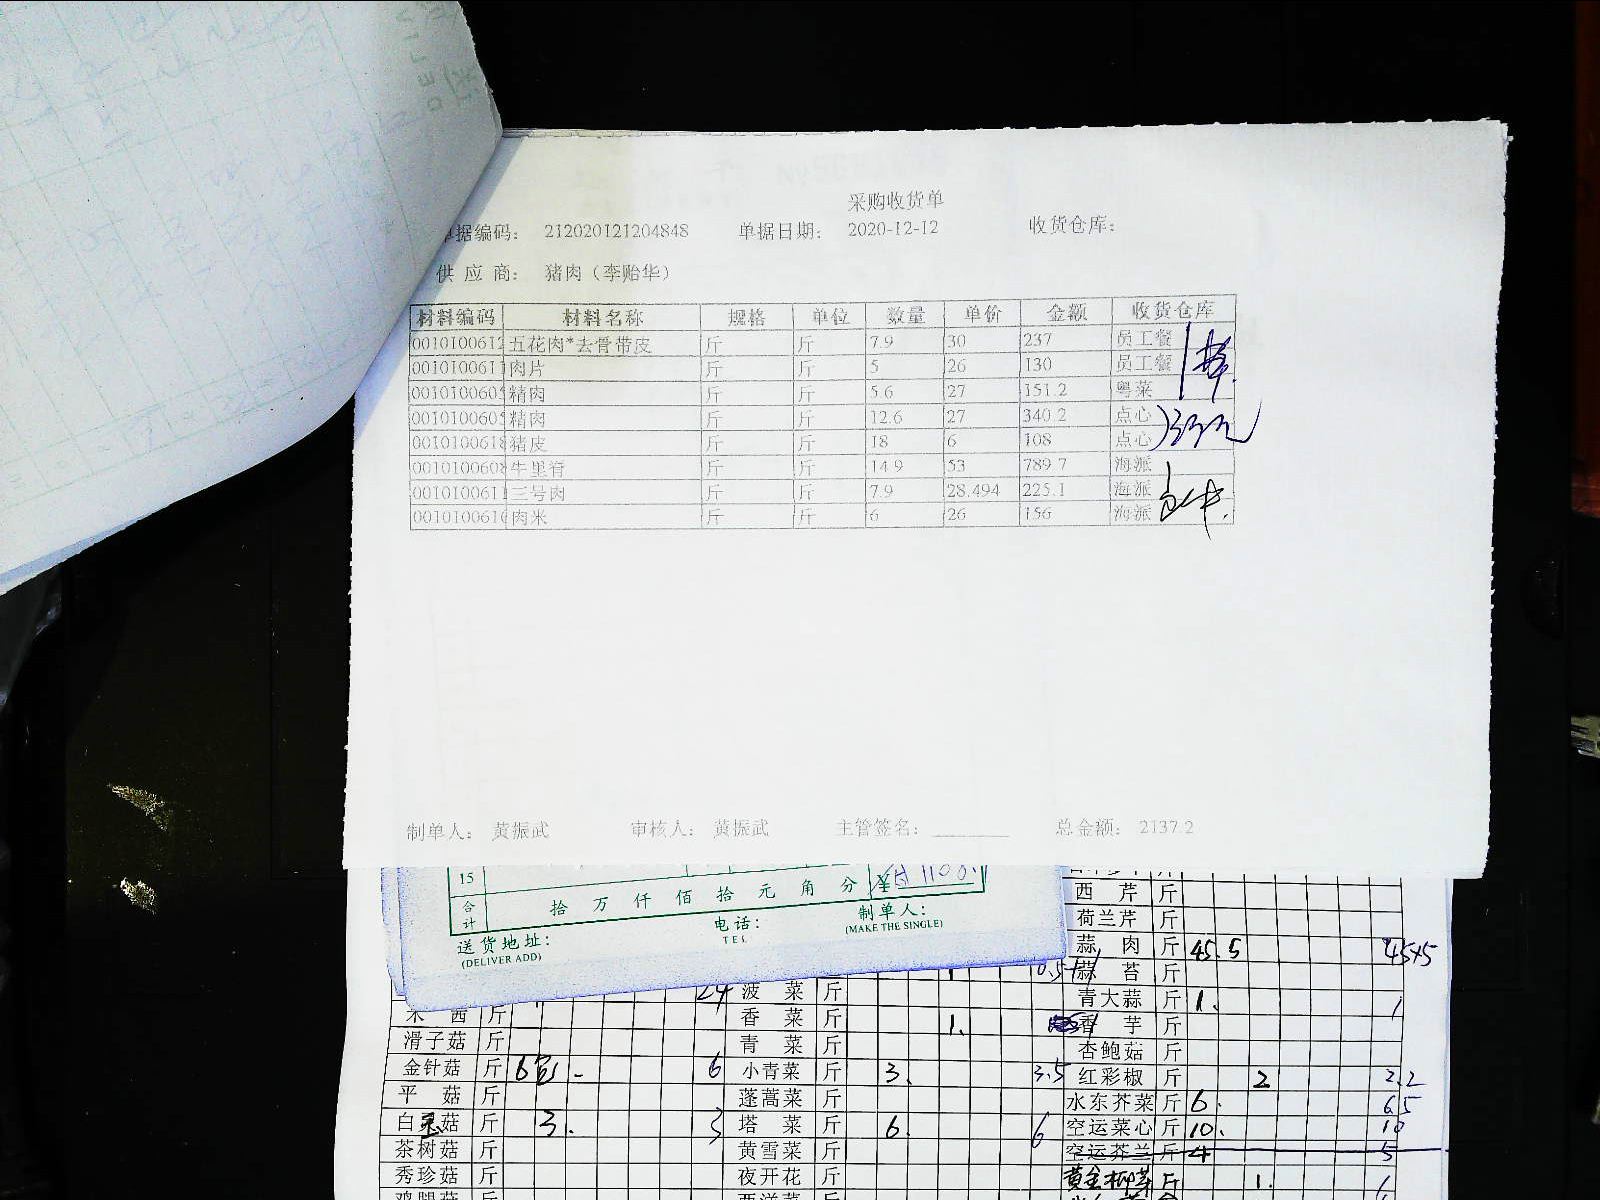 采购收货单
单据编码： 212020121204848 单据日期： 2020-12-12 收货仓库：
供 应 商： 猪肉（李贻华）
材料编码 材料名称 规格 单位 数量 单价 金额 收货仓库
0010100612 五花肉*去骨带皮 斤 斤 7.9 30 237 员工餐
0010100611 肉片 斤 斤 5 26 130 员工餐
001010060 精肉 斤 斤 5.6 27 151.2 粤菜
001010060 精肉 斤 斤 12.6 27 340.2 点心
0010100618 猪皮 斤 斤 18 6 108 点心
0010100608 牛里脊 斤 斤 14.9 53 789.7 海派
0010100611 三号肉 斤 斤 7.9 28.494 225.1 海派
001010061 肉米 斤 斤 6 26 156 海派
制单人： 黄振武 审核人： 黄振武 主管签名： 总金额： 2137.2
15
合计 拾 万 仟 佰 拾 元 角 分 ¥ 1100.
送货地址：
(DELIVER ADD)
电话：
TEL
制单人：
(MAKE THE SINGLE)
西 芹 斤
荷兰芹 斤
蒜 肉 斤 45.5 45.5
蒜 苔 斤
24 菠 菜 斤 青大蒜 斤 1. 1
斤 香 菜 斤 1. 香 芋 斤
滑子菇 斤 青 菜 斤 杏鲍菇 斤
金针菇 斤 6包 6 小青菜 斤 3. 3.5 红彩椒 斤 2 2.2
平 菇 斤 蓬蒿菜 斤 水东芥菜 斤 6. 6.5
白玉菇 斤 3. 3 塔 菜 斤 6. 6 空运菜心 斤 10. 10
茶树菇 斤 黄雪菜 斤 空运芥兰 斤 4 5
秀珍菇 斤 夜开花 斤 斤 1. 1
鸡腿菇 斤 西洋菜 斤